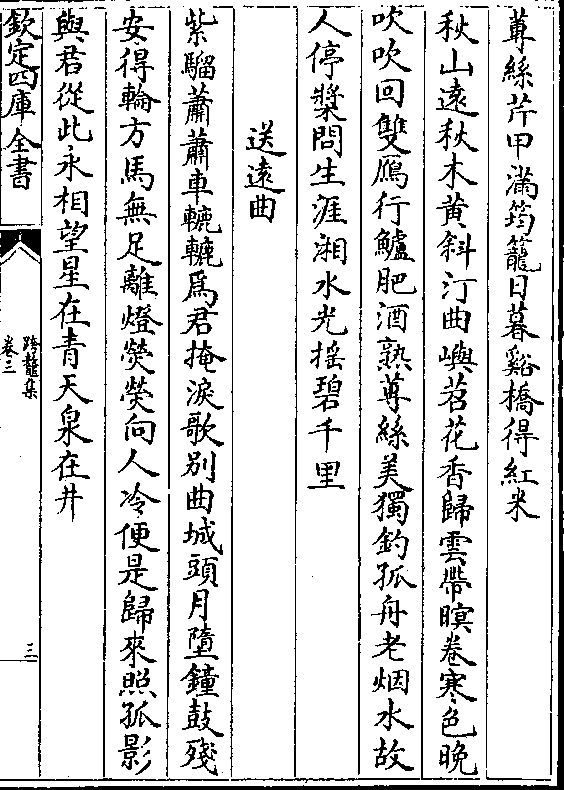 蓴絲芹甲滿筠籠日暮谿橋得紅米
秋山遠秋木黄斜汀曲嶼苕花香歸雲帶暝卷寒色晚
吹吹回雙鴈行鱸肥酒熟蓴絲美獨釣孤舟老烟水故
人停槳問生涯湘水光摇碧千里
送遠曲
紫騮蕭蕭車轆轆爲君掩淚歌别曲城頭月墮鐘鼓殘
安得輪方馬無足離燈熒熒向人冷便是歸來照孤影
與君從此永相望星在青天泉在井
欽定四庫全書
跨鼇集
卷三
三